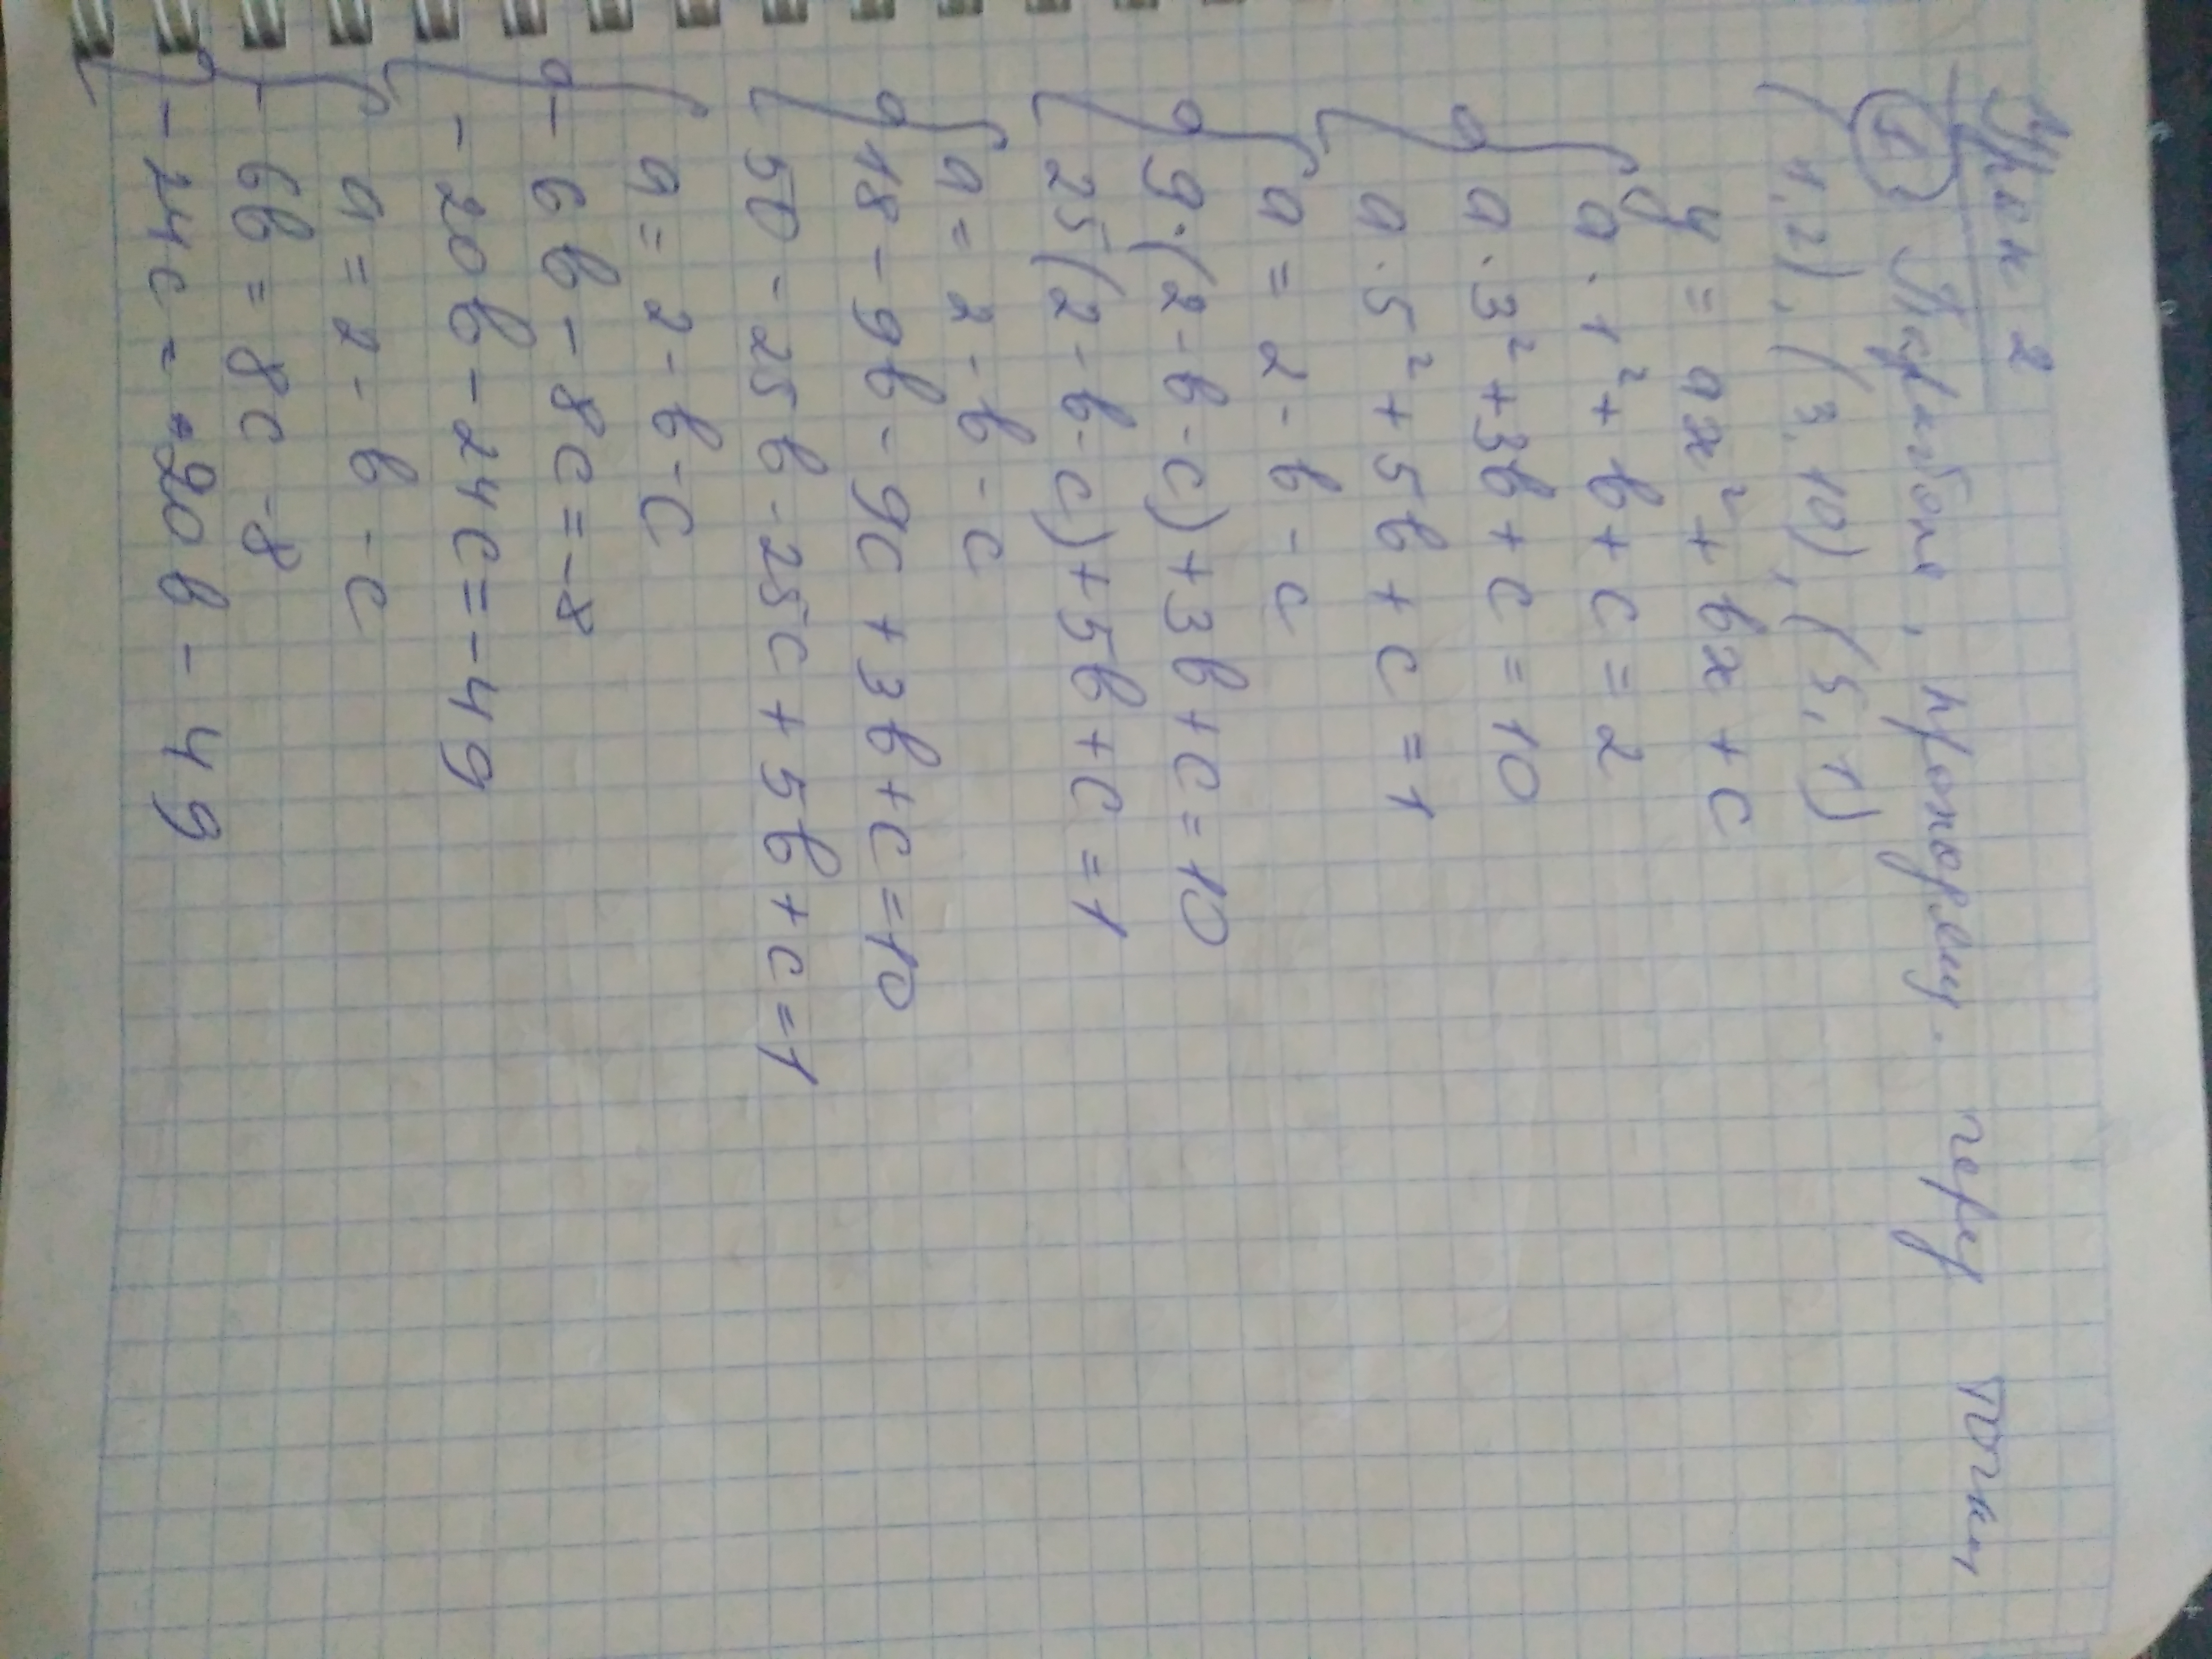 Урок 2
① Парабола, проходящ. через точки
(1,2), (3,10), (5,1)
y = ax² + bx + c
a · 1² + b + c = 2
a · 3² + 3b + c = 10
a · 5² + 5b + c = 1
a = 2 - b - c
9·(2 - b - c) + 3b + c = 10
25(2 - b - c) + 5b + c = 1
a = 2 - b - c
18 - 9b - 9c + 3b + c = 10
50 - 25b - 25c + 5b + c = 1
a = 2 - b - c
- 6b - 8c = -8
- 20b - 24c = -49
a = 2 - b - c
- 6b = 8c - 8
- 24c = 20b - 49